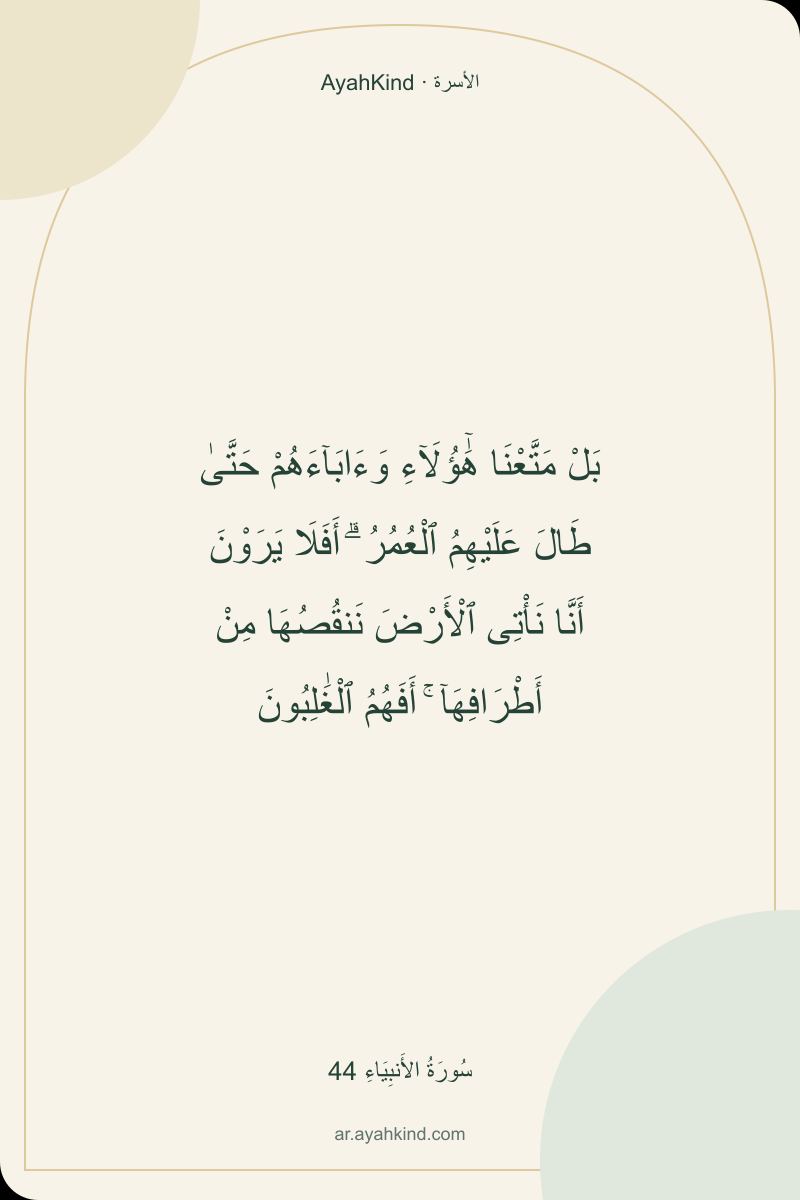 AyahKind · الأسرة
بَلْ مَتَّعْنَا هَٰٓؤُلَآءِ وَءَابَآءَهُمْ حَتَّىٰ
طَالَ عَلَيْهِمُ ٱلْعُمُرُ ۗ أَفَلَا يَرَوْنَ
أَنَّا نَأْتِى ٱلْأَرْضَ نَنقُصُهَا مِنْ
أَطْرَافِهَآ ۚ أَفَهُمُ ٱلْغَٰلِبُونَ
سُورَةُ الأَنبِيَاءِ 44
ar.ayahkind.com